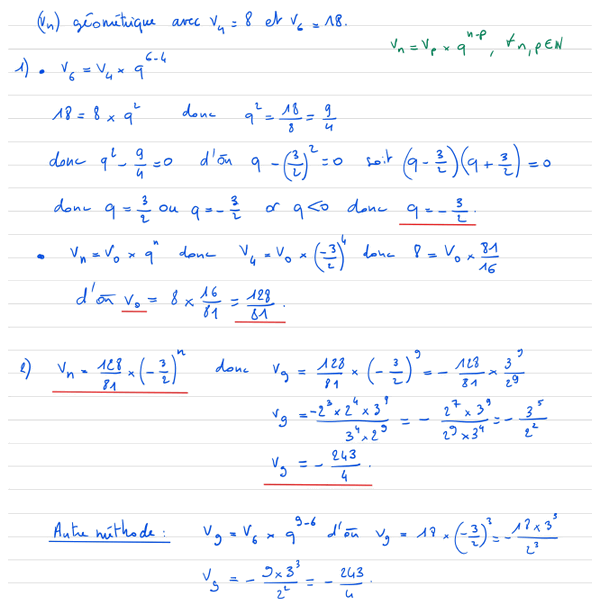 (Vn) géométrique avec V₄ = 8 et V₆ = 18.
Vn = Vp × q^(n-p), ∀ n, p ∈ ℕ
1) • V₆ = V₄ × q^(6-4)
18 = 8 × q² donc q² = 18/8 = 9/4
donc q² - 9/4 = 0 d'où q - (3/2)² = 0 soit (q - 3/2)(q + 3/2) = 0
donc q = 3/2 ou q = -3/2 or q < 0 donc q = -3/2.
• Vn = V₀ × qⁿ donc V₄ = V₀ × (-3/2)⁴ donc 8 = V₀ × 81/16
d'où V₀ = 8 × 16/81 = 128/81.
2) Vn = 128/81 × (-3/2)ⁿ donc V₉ = 128/81 × (-3/2)⁹ = - 128/81 × 3⁹/2⁹
V₉ = -2³ × 2⁴ × 3⁹ / 3⁴ × 2⁹ = - 2⁷ × 3⁹ / 2⁹ × 3⁴ = - 3⁵/2²
V₉ = - 243/4.
Autre méthode : V₉ = V₆ × q^(9-6) d'où V₉ = 18 × (-3/2)³ = - 18 × 3³ / 2³
V₉ = - 9 × 3³ / 2² = - 243/4.